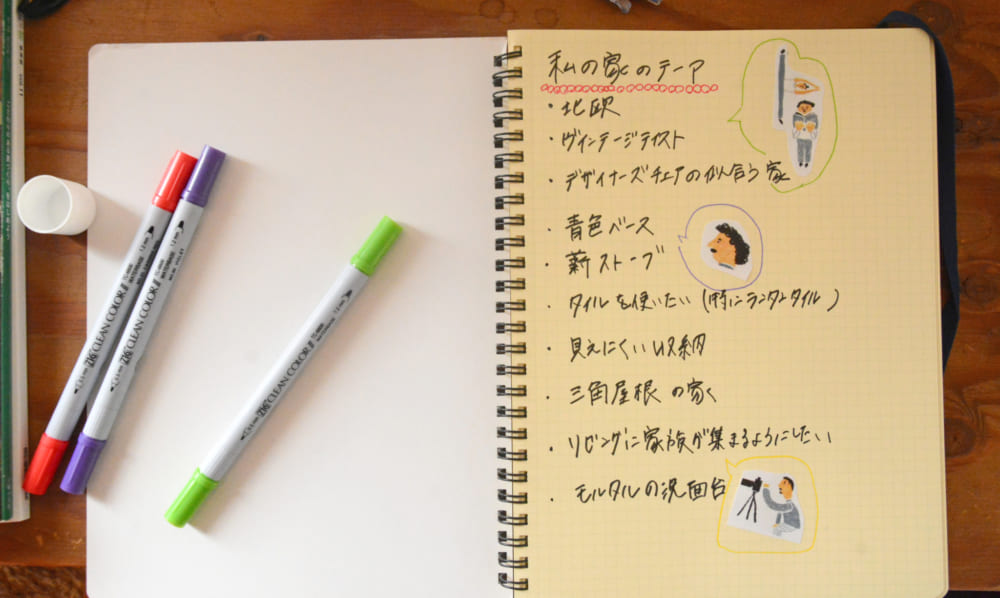 私の家のテーマ
・北欧
・ヴィンテージテイスト
・デザイナーズチェアの似合う家
・青色ベース
・薪ストーブ
・タイルを使いたい(特にランタンタイル)
・見えにくい収納
・三角屋根の家
・リビングに家族が集まるようにしたい
・モルタルの洗面台
ZIG CLEAN COLOR II
ZIG CLEAN COLOR II
ZIG CLEAN COLOR II